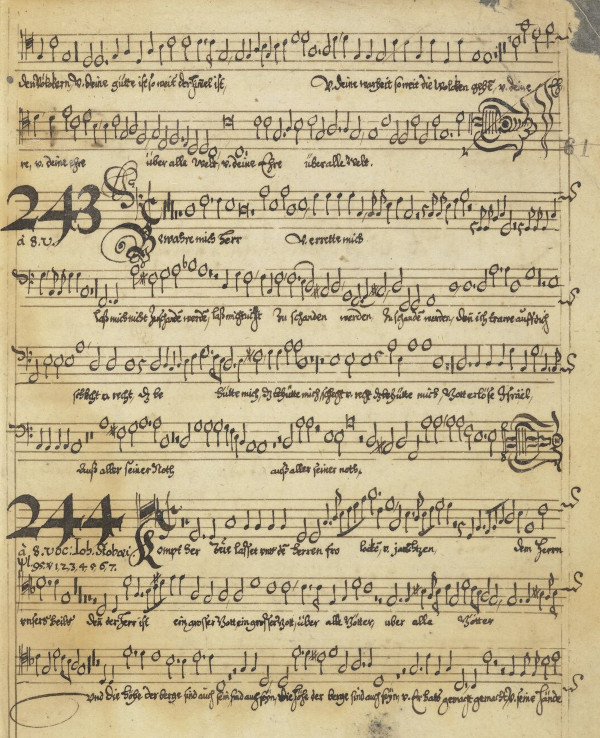 den Völckern, v. deine gütte ist so weit der himel ist, v. deine warheit so weit die wolcken gehē, v. deine Eh
re, v. deine ehre über alle welt, v. deine Ehre über alle welt.
61
243
à 8. v.
Bewahre mich herr v. errette mich
laß mich nicht Zuschandē werdē, laß mich nicht Zu schanden werden, Zu schandē werden, denn ich trawe auff dich
schlecht v. recht, dz be hütte mich, dz behütte mich, schlecht v. recht dz behütte mich Gott erlöse Israel,
auß aller seiner Noth auß aller seiner noth,
244
à 8. voc: Joh. Stobaei
Ps. 95. v. 1. 2. 3. 4. 5. 6. 7.
Kompt her lasset vns dē herren fro v. jauchtzen, dem Herrn
vnsers heils denn der Herr ist ein grosser Gott ein grosser Gott, über alle Götter, über alle Götter
vnd die höhe der berge sind auch sein sind auch sein, die höhe der berge sind auch sein, v. Er hats gemacht gemacht, v. seine hände